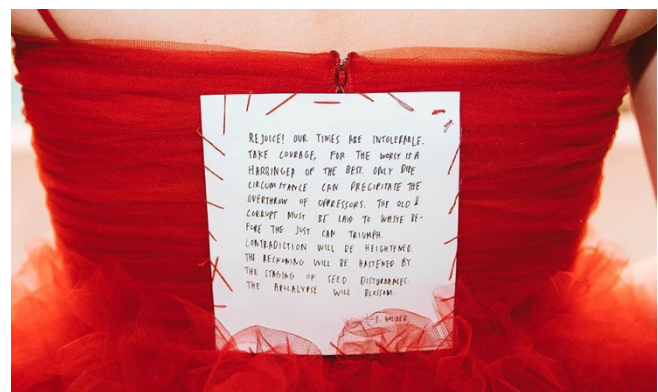 REJOICE! OUR TIMES ARE INTOLERABLE.
TAKE COURAGE, FOR THE WORST IS A
HARBINGER OF THE BEST. ONLY DIRE
CIRCUMSTANCE CAN PRECIPITATE THE
OVERTHROW OF OPPRESSORS. THE OLD &
CORRUPT MUST BE LAID TO WASTE BE-
FORE THE JUST CAN TRIUMPH.
CONTRADICTION WILL BE HEIGHTENED.
THE RECKONING WILL BE HASTENED BY
THE STAGING OF SEED DISTURBANCES.
THE APOCALYPSE WILL BLOSSOM.
-J. HOLZER